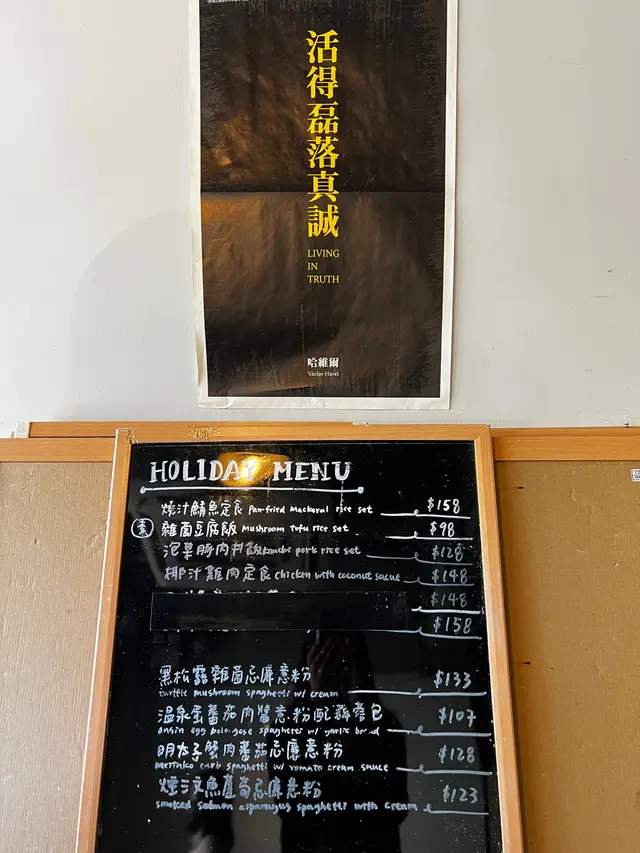 活得磊落真誠
LIVING
IN
TRUTH
哈維爾
Václav Havel
HOLIDAY MENU
燒汁鯖魚定食 Pan-fried Mackaral rice set $158
素 雜菌豆腐飯 Mushroom tofu rice set $98
泡菜豚肉丼飯 kimchi pork rice set $128
椰汁雞肉定食 chicken with coconut sacue $148
$148
$158
黑松露雜菌忌廉意粉
turffle mushroom spaghetti w/ cream $133
温泉蛋蕃茄肉醬意粉配蒜蓉包
onsin egg bolo gase spaghetti w/ garlic bread $107
明太子蟹肉蕃茄忌廉意粉
carb spaghetti w/ tomato cream sauce $128
煙三文魚蘆荀忌廉意粉
smoked salmon asparagus spaghetti with cream $123